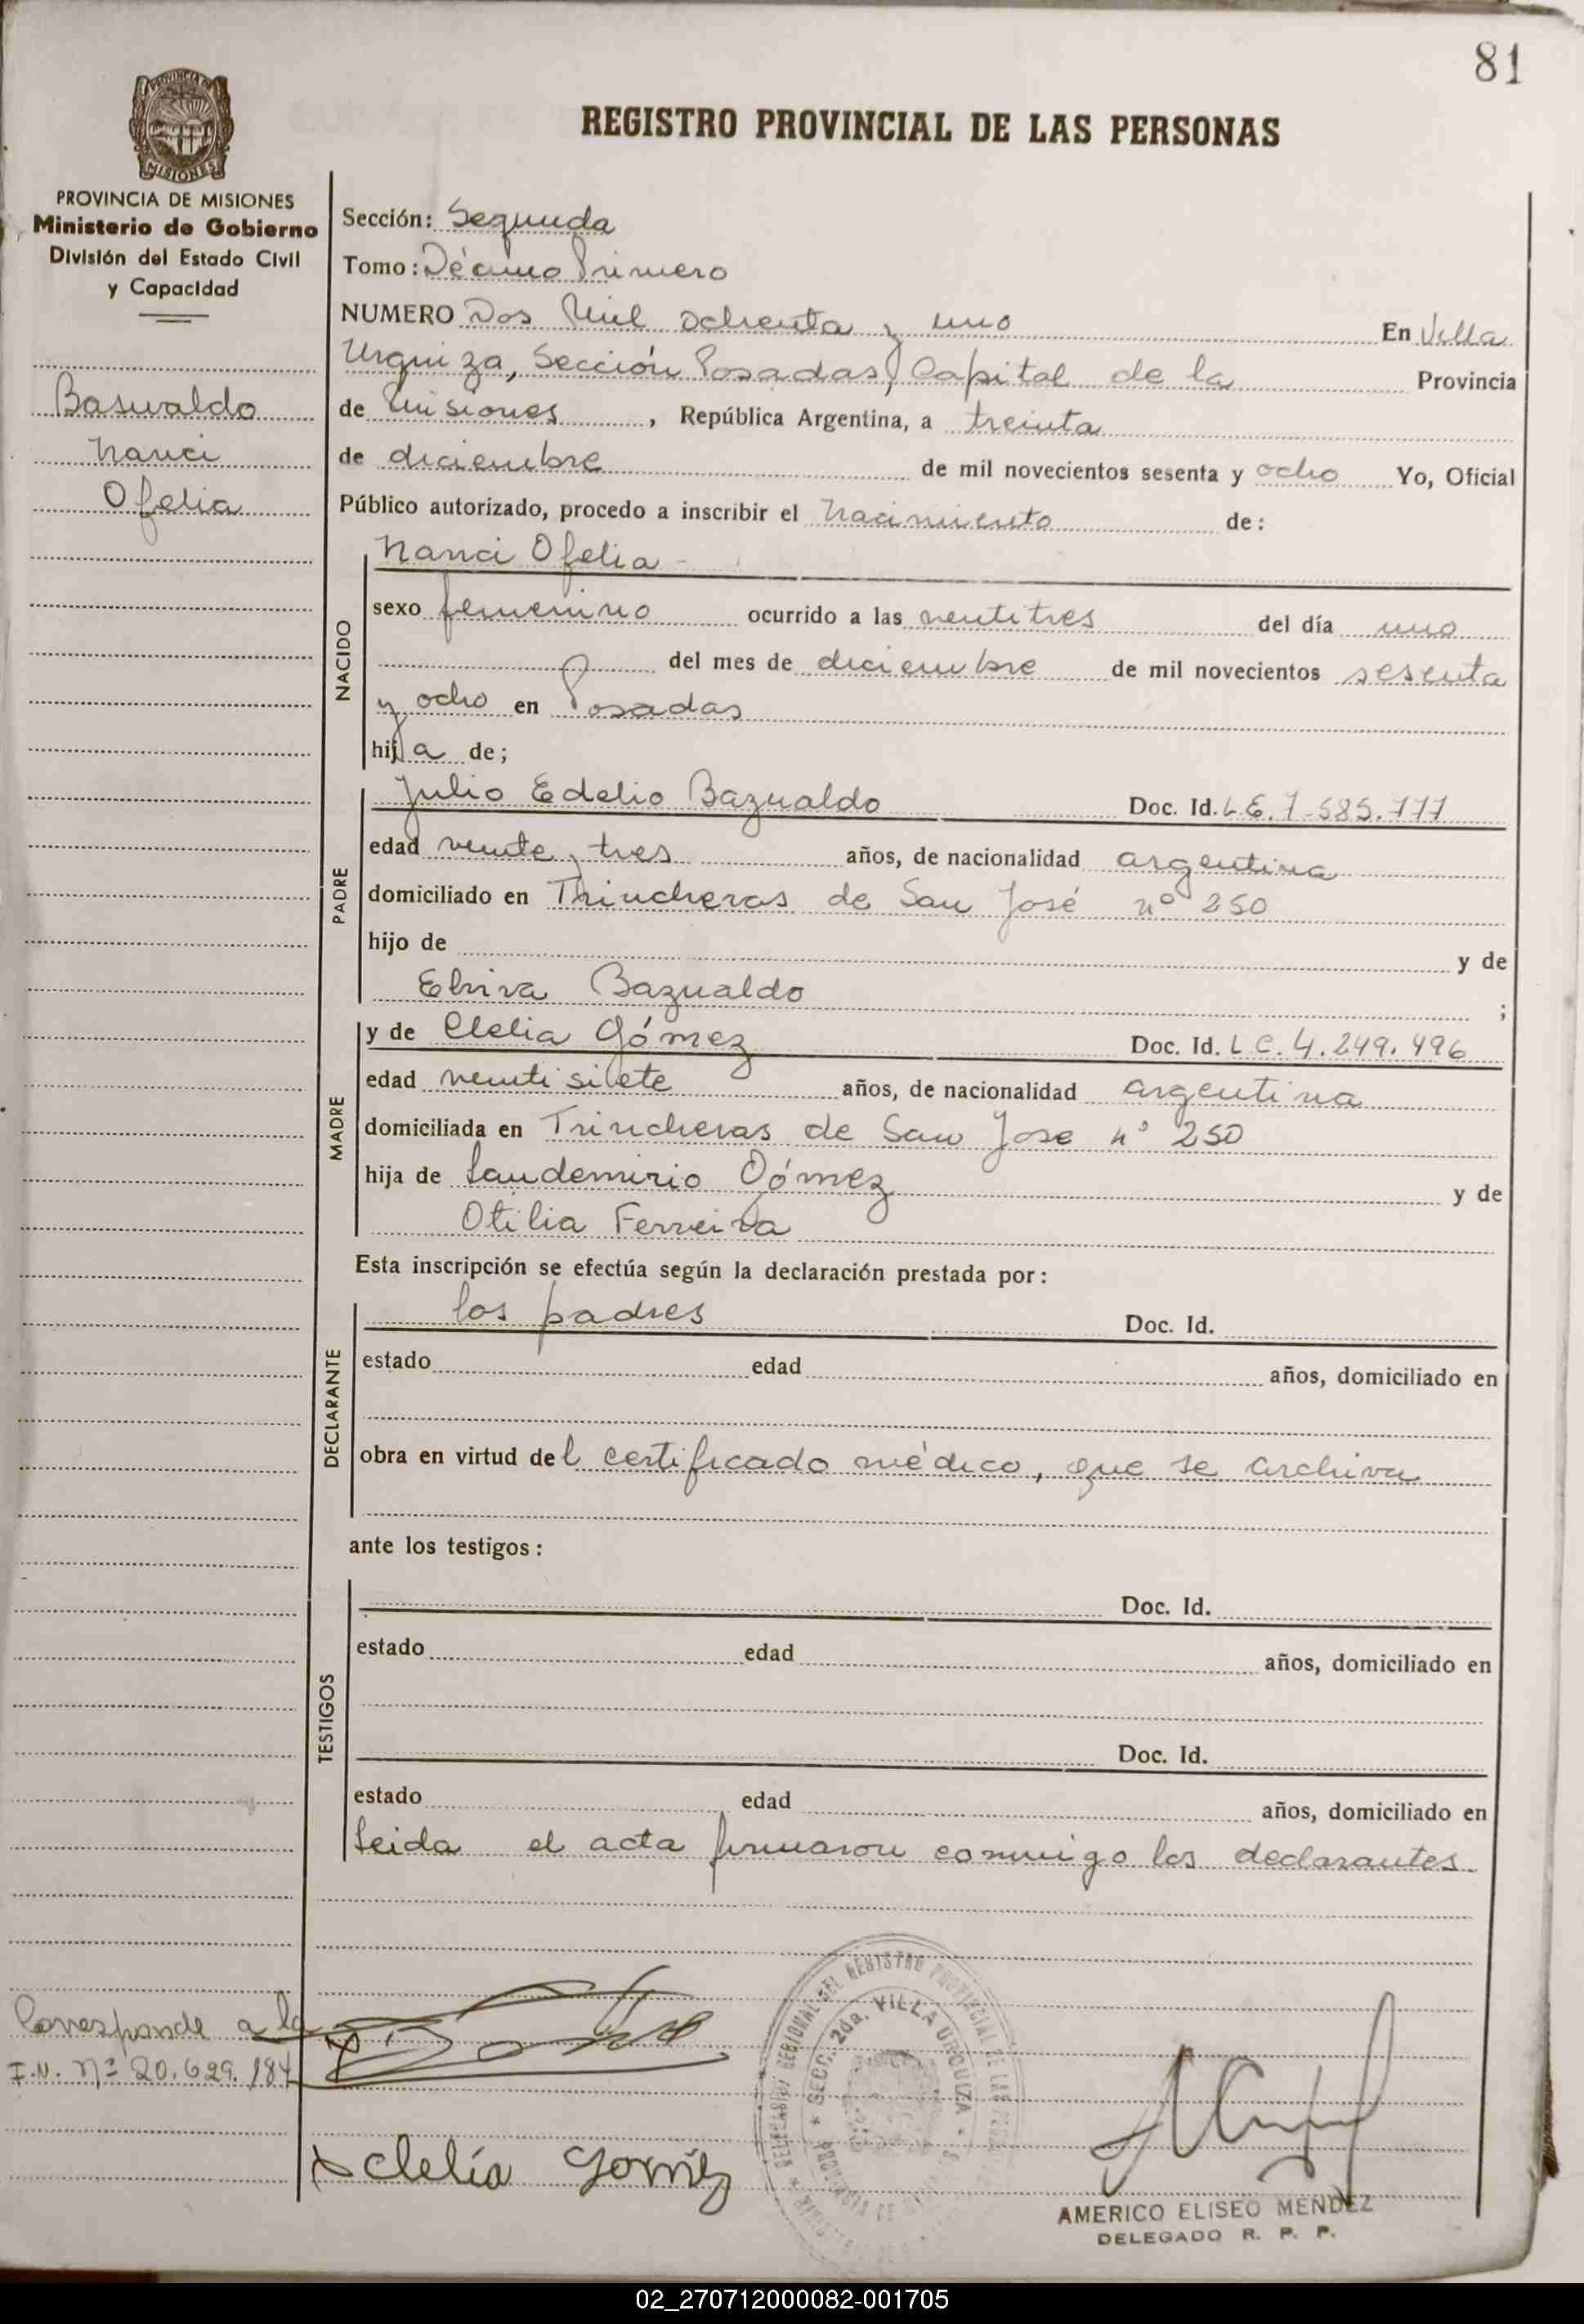 81
REGISTRO PROVINCIAL DE LAS PERSONAS
PROVINCIA DE MISIONES
Ministerio de Gobierno
División del Estado Civil
y Capacidad
Basualdo
Nanci
Ofelia
Sección: Segunda
Tomo: Décimo Primero
NUMERO Dos Mil ochenta y uno En Villa
Urquiza, Sección Posadas, Capital de la Provincia
de Misiones, República Argentina, a treinta
de diciembre de mil novecientos sesenta y ocho Yo, Oficial
Público autorizado, procedo a inscribir el Nacimiento de:
NACIDO
Nanci Ofelia
sexo femenino ocurrido a las ventitres del día uno
del mes de diciembre de mil novecientos sesenta
y ocho en Posadas
hija de;
PADRE
Julio Edelio Bazualdo Doc. Id. L.E. 7.585.777
edad veinte y tres años, de nacionalidad argentina
domiciliado en Trincheras de San José nº 250
hijo de y de
Elvira Bazualdo ;
MADRE
y de Clelia Gómez Doc. Id. L.C. 4.249.496
edad ventisiete años, de nacionalidad argentina
domiciliada en Trincheras de San Jose nº 250
hija de Laudemirio Gómez y de
Otilia Ferreira
Esta inscripción se efectúa según la declaración prestada por:
DECLARANTE
los padres Doc. Id.
estado edad años, domiciliado en
obra en virtud del certificado médico, que se archiva
ante los testigos:
TESTIGOS
Doc. Id.
estado edad años, domiciliado en
Doc. Id.
estado edad años, domiciliado en
Leida el acta firmaron conmigo los declarantes
Corresponde a la
I.N. Nº 20.629.184
Clelía Goméz
SECC. 2da. VILLA URQUIZA
AMERICO ELISEO MENDEZ
DELEGADO R. P. P.
02_270712000082-001705